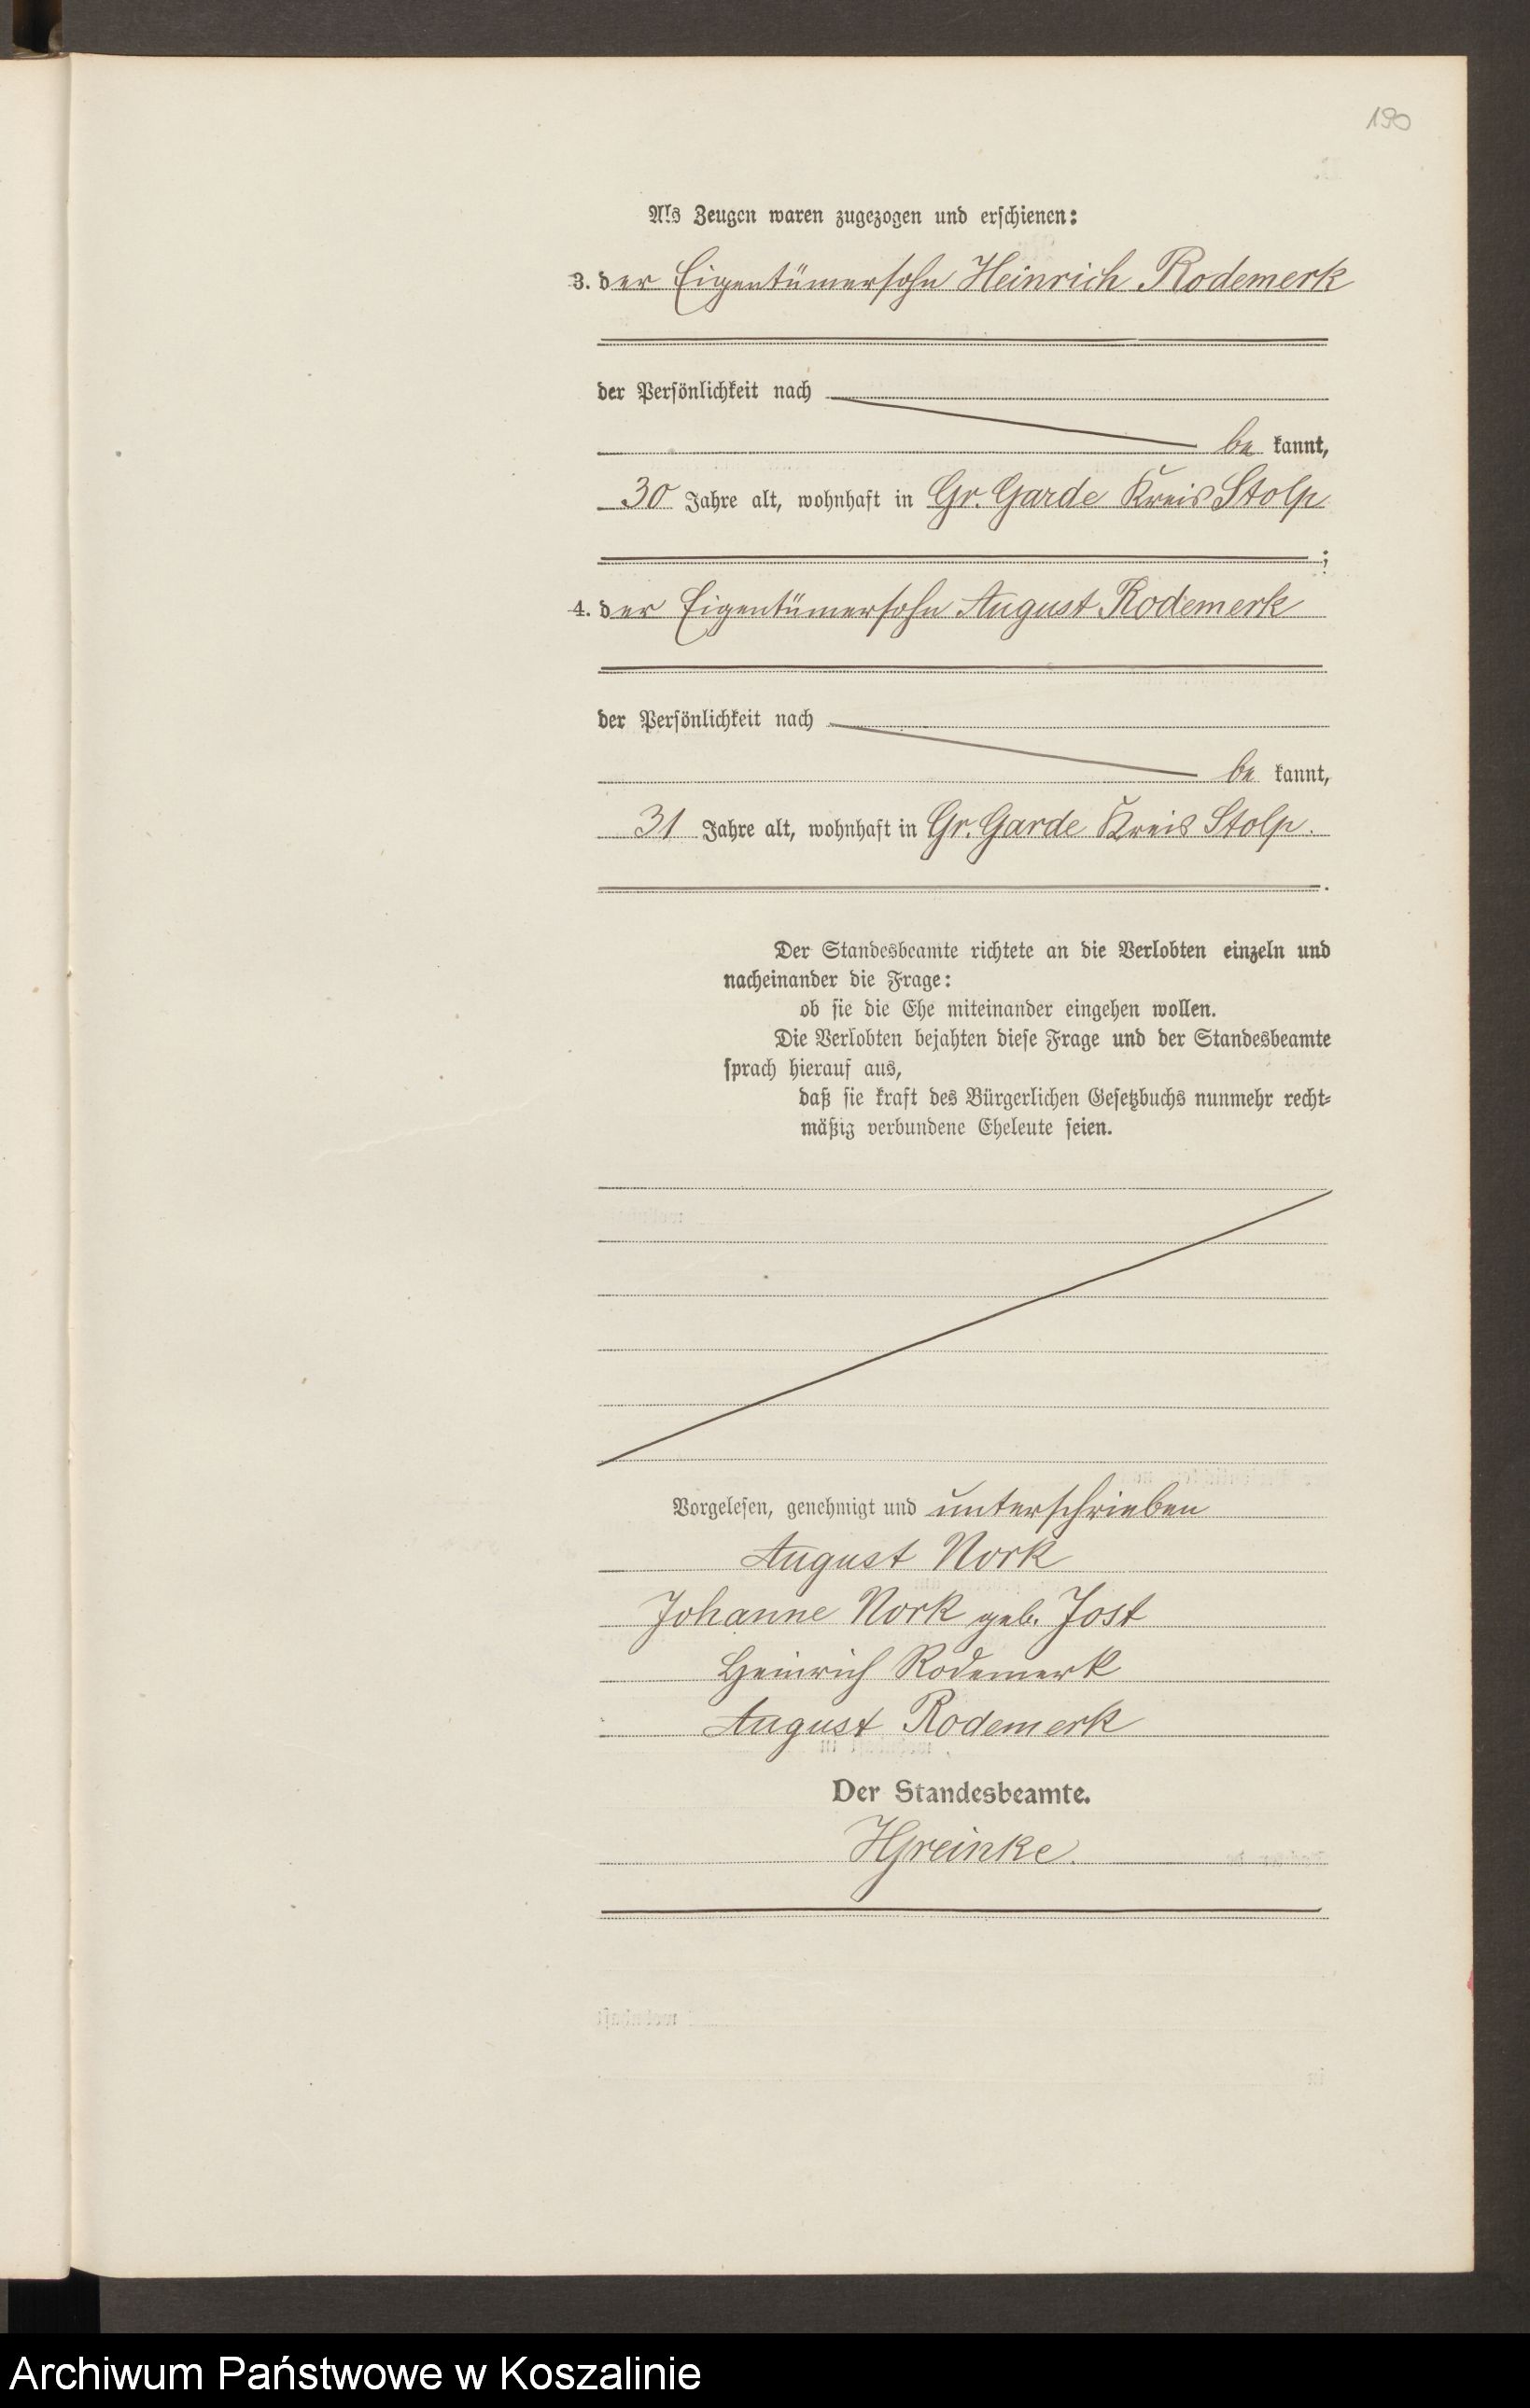 190
Als Zeugen waren zugezogen und erschienen:
3. der Eigentümersohn Heinrich Rodemerk
der Persönlichkeit nach
be kannt,
30 Jahre alt, wohnhaft in Gr. Garde Kreis Stolp
;
4. der Eigentümersohn August Rodemerk
der Persönlichkeit nach
be kannt,
31 Jahre alt, wohnhaft in Gr. Garde Kreis Stolp.
.
Der Standesbeamte richtete an die Verlobten einzeln und
nacheinander die Frage:
ob sie die Ehe miteinander eingehen wollen.
Die Verlobten bejahten diese Frage und der Standesbeamte
sprach hierauf aus,
daß sie kraft des Bürgerlichen Gesetzbuchs nunmehr recht-
mäßig verbundene Eheleute seien.
Vorgelesen, genehmigt und unterschrieben
August Nork
Johanne Nork geb. Jost
Heinrich Rodemerk
August Rodemerk
Der Standesbeamte.
Archiwum Państwowe w Koszalinie